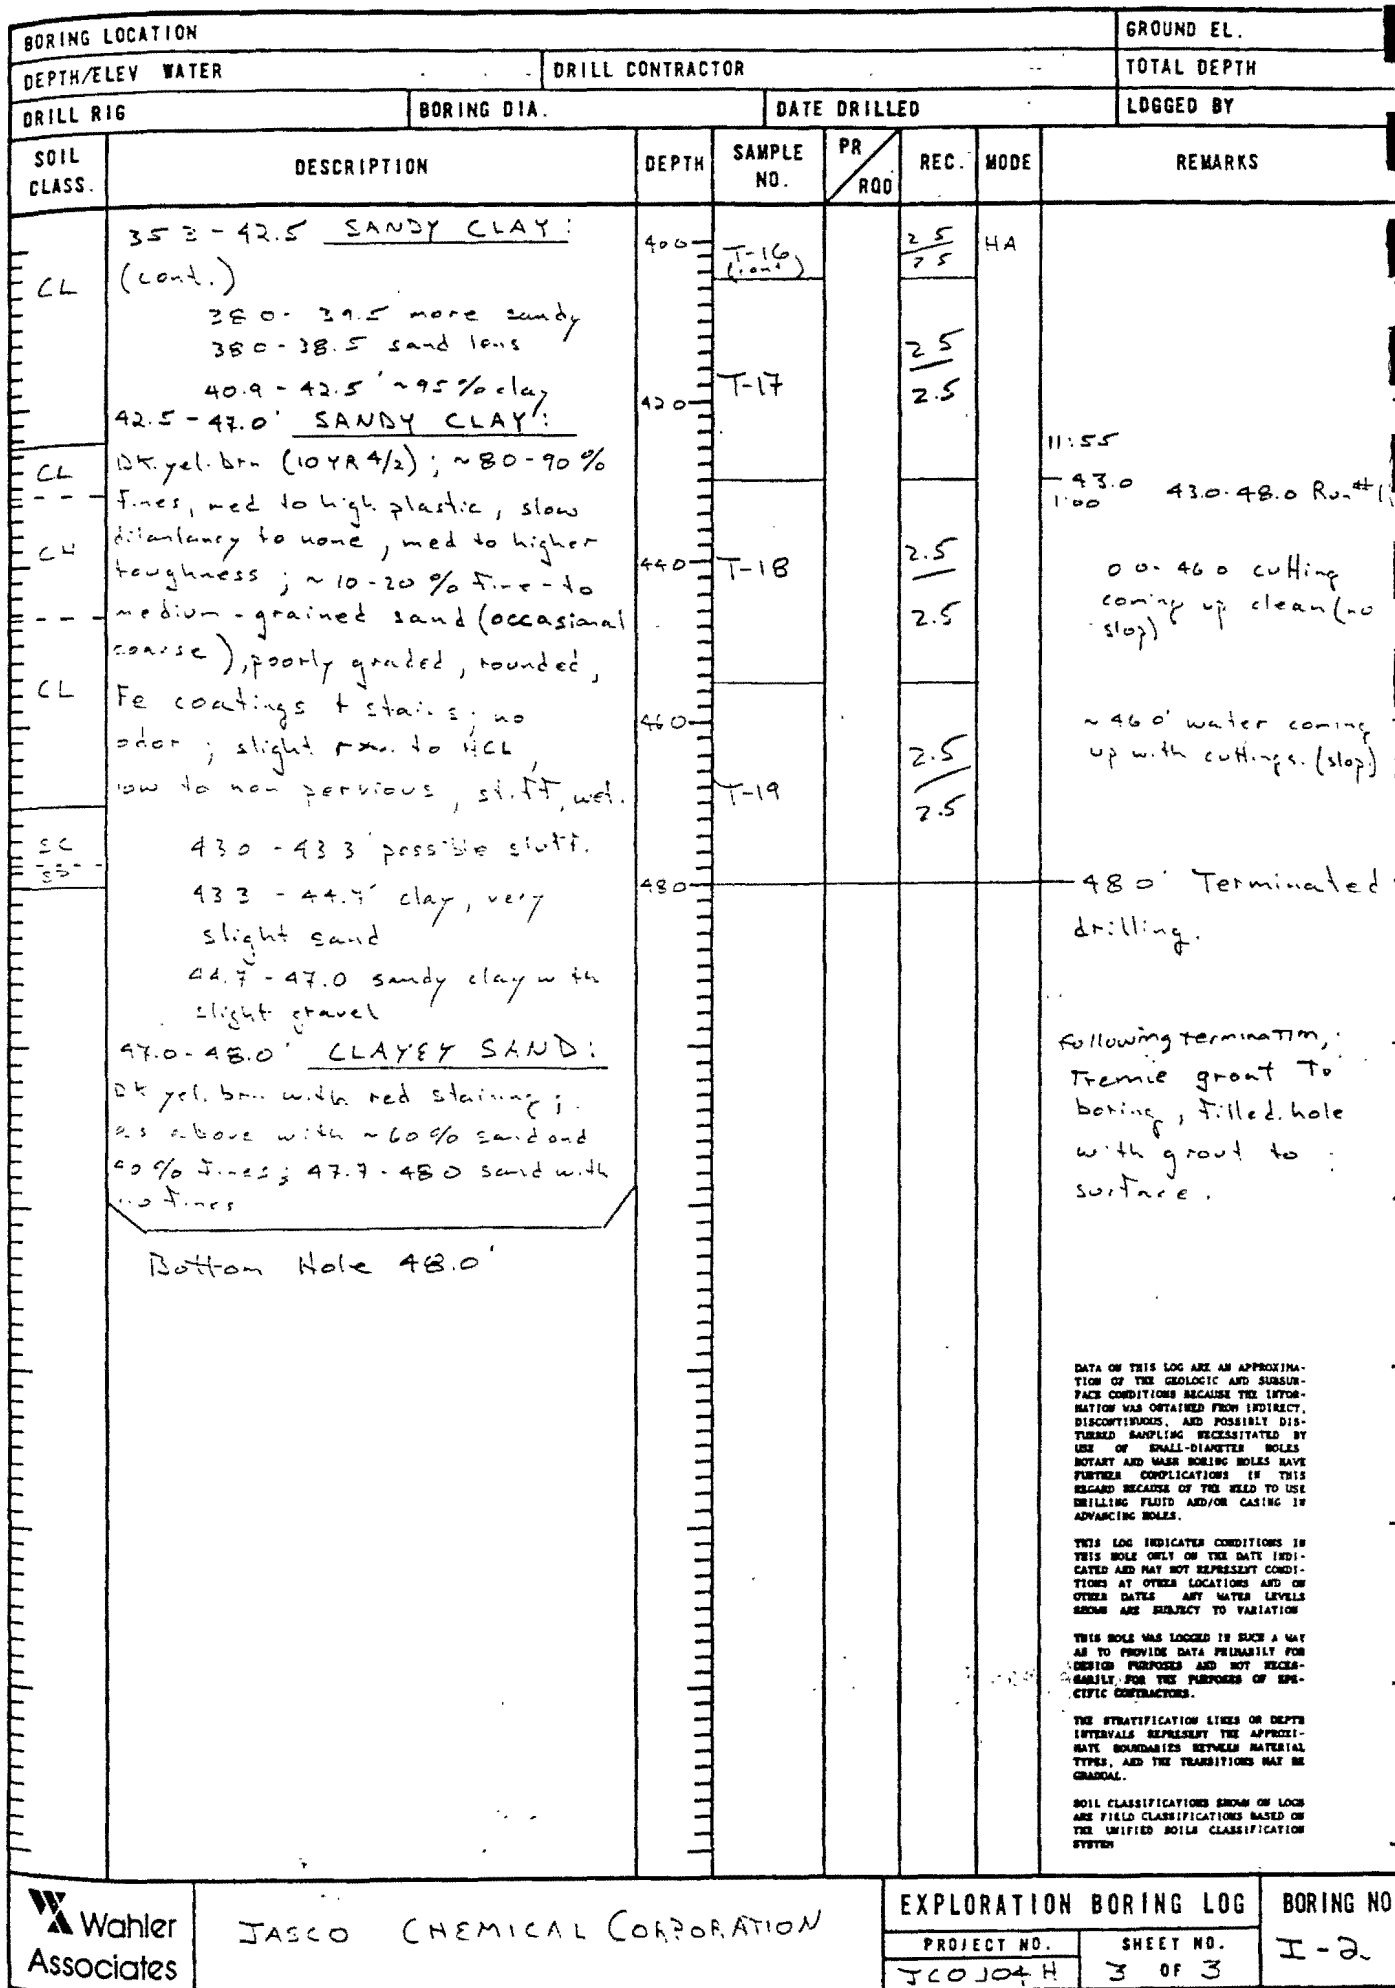 BORING LOCATION
GROUND EL.
DEPTH/ELEV WATER
DRILL CONTRACTOR
TOTAL DEPTH
DRILL RIG
BORING DIA.
DATE DRILLED
LOGGED BY
SOIL CLASS.
DESCRIPTION
DEPTH
SAMPLE NO.
PR
RQD
REC.
MODE
REMARKS
CL
CL
CH
CL
SC
SP
42.5 SANDY CLAY:
(cont.)
38 0 - 39.5 more sandy
38 0 - 38.5 sand lens
40.9 - 42.5' ~95% clay
42.5 - 47.0' SANDY CLAY:
DK. yel. brn (10YR 4/2); ~80-90%
fines, med to high plastic, slow
dilantancy to none, med to higher
toughness; ~10-20% fine-to
medium-grained sand (occasional
coarse), poorly graded, rounded,
Fe coatings + stains; no
odor; slight rxn. to HCL,
low to non pervious, stiff, wet.
43 0 - 43 3' possible sluff.
43 3 - 44.7' clay, very
slight sand
44.7 - 47.0 sandy clay with
slight gravel
47.0 - 48.0' CLAYEY SAND:
DK yel. brn. with red staining;
as above with ~60% sand and
40% fines; 47.7 - 48 0 sand with
no fines
Bottom Hole 48.0'
40 0
42 0
44 0
46 0
48 0
T-16
(cont)
T-17
T-18
T-19
2 5
2 5
2 5
2.5
2.5
2.5
2.5
2.5
HA
11:55
43.0
1:00
43.0-48.0 Run #
0 0 - 46 0 cutting
coming up clean (no
slop)
~ 46 0' water coming
up with cuttings. (slop)
48 0' Terminated
drilling.
Following termination,
Tremie grout To
boring, filled hole
with grout to
surface.
DATA ON THIS LOG ARE AN APPROXIMA-
TION OF THE GEOLOGIC AND SUBSUR-
FACE CONDITIONS BECAUSE THE INFOR-
MATION WAS OBTAINED FROM INDIRECT,
DISCONTINUOUS, AND POSSIBLY DIS-
TURBED SAMPLING NECESSITATED BY
USE OF SMALL-DIAMETER HOLES
ROTARY AND WASH BORING HOLES HAVE
FURTHER COMPLICATIONS IN THIS
REGARD BECAUSE OF THE NEED TO USE
DRILLING FLUID AND/OR CASING IN
ADVANCING HOLES.
THIS LOG INDICATES CONDITIONS IN
THIS HOLE ONLY ON THE DATE INDI-
CATED AND MAY NOT REPRESENT CONDI-
TIONS AT OTHER LOCATIONS AND ON
OTHER DATES ANY WATER LEVELS
SHOWN ARE SUBJECT TO VARIATION
THIS HOLE WAS LOGGED IN SUCH A WAY
AS TO PROVIDE DATA PRIMARILY FOR
DESIGN PURPOSES AND NOT NECES-
SARILY FOR THE PURPOSES OF SPE-
CIFIC CONTRACTORS.
THE STRATIFICATION LINES OR DEPTH
INTERVALS REPRESENT THE APPROXI-
MATE BOUNDARIES BETWEEN MATERIAL
TYPES, AND THE TRANSITIONS MAY BE
GRADUAL.
SOIL CLASSIFICATIONS SHOWN ON LOGS
ARE FIELD CLASSIFICATIONS BASED ON
THE UNIFIED SOILS CLASSIFICATION
SYSTEM
Wahler
Associates
JASCO CHEMICAL CORPORATION
EXPLORATION BORING LOG
PROJECT NO.
JCO 104 H
SHEET NO.
3 OF 3
BORING NO
I-2